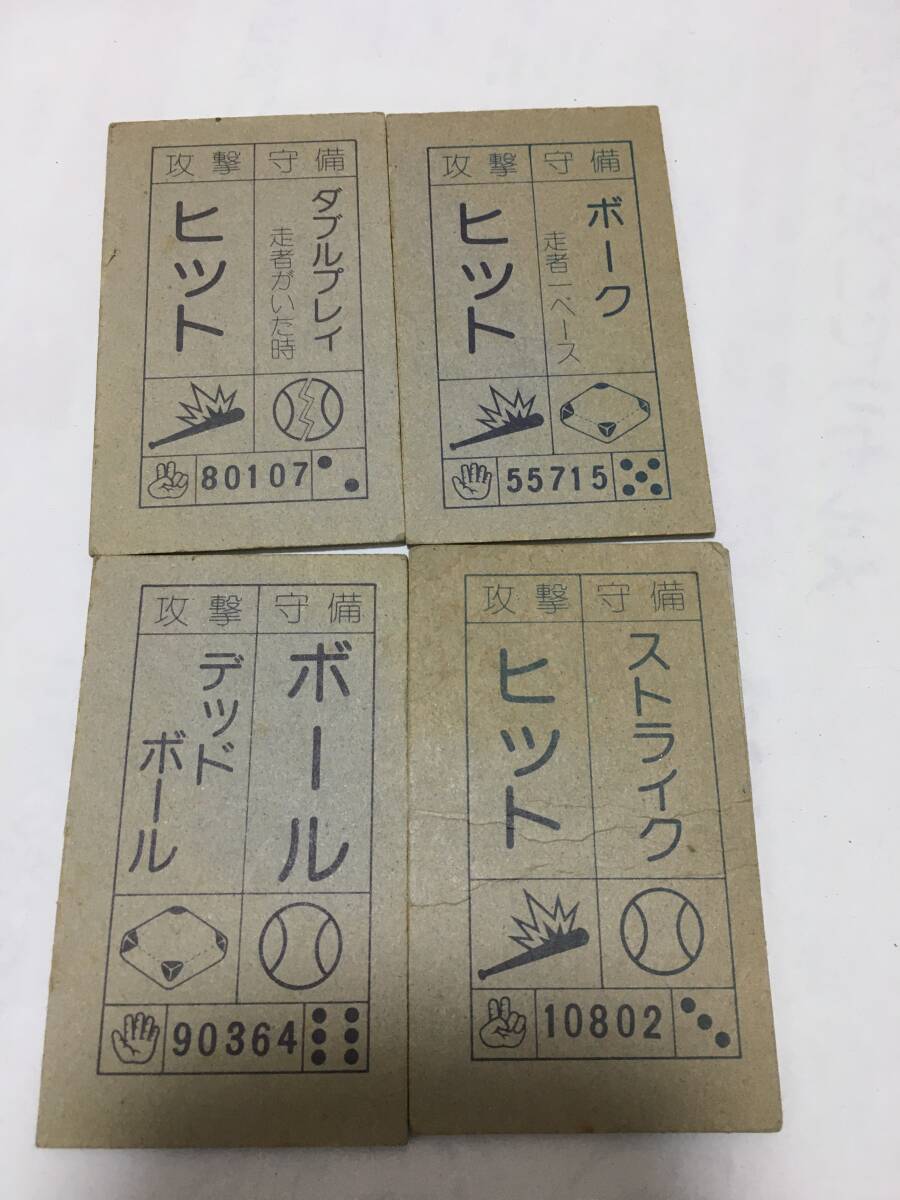 攻撃 守備
ヒット
ダブルプレイ
走者がいた時
80107
攻撃 守備
ヒット
ボーク
走者一ベース
55715
攻撃 守備
デッド
ボール
ボール
90364
攻撃 守備
ヒット
ストライク
10802